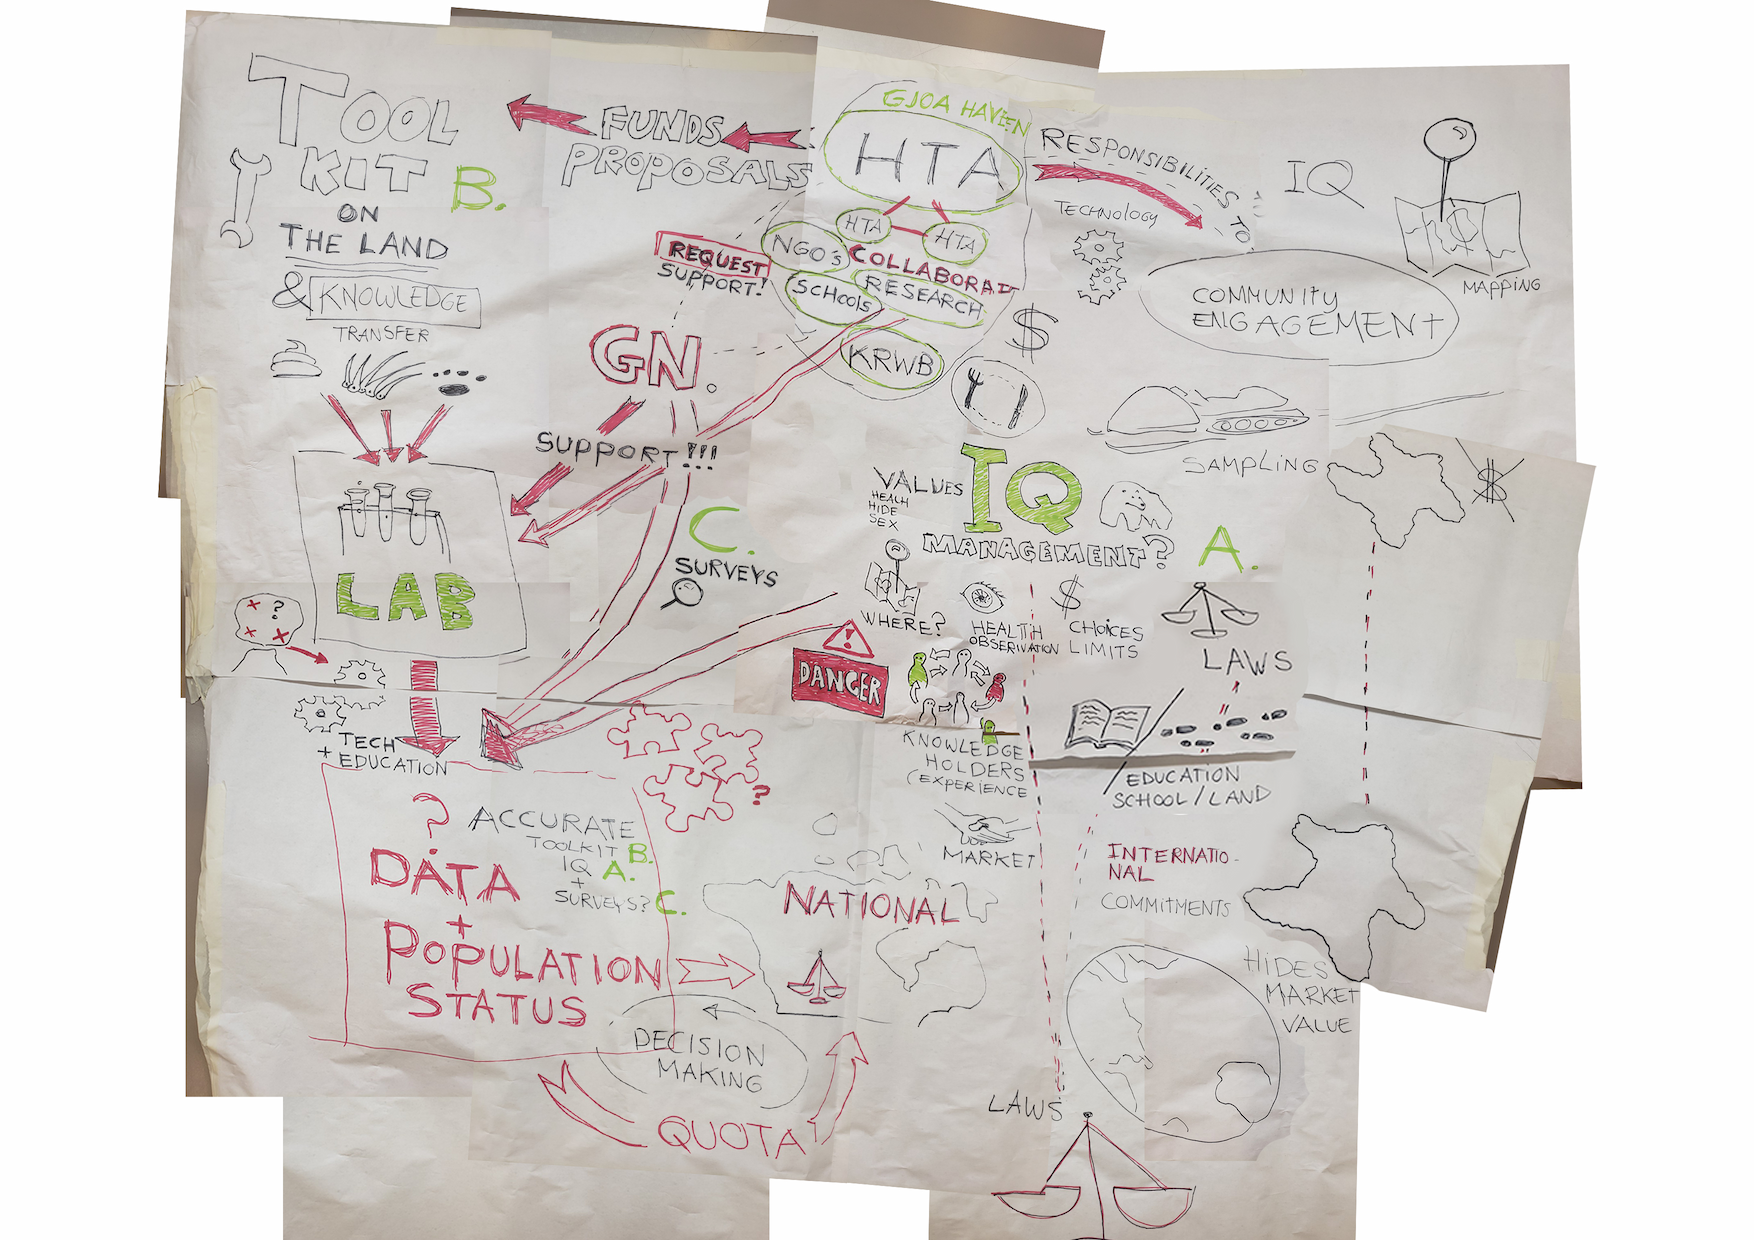 TOOL
KIT B.
ON
THE LAND
& KNOWLEDGE
TRANSFER
FUNDS
PROPOSALS
GJOA HAVEN
HTA
HTA
HTA
NGO's
COLLABORAT
SCHOOLS
RESEARCH
KRWB
REQUEST
SUPPORT!
GN.
SUPPORT!!!
RESPONSIBILITIES TO
TECHNOLOGY
IQ
MAPPING
COMMUNITY
ENGAGEMENT
$
SAMPLING
$
LAB
?
C.
SURVEYS
VALUES
HEALH
HIDE
SEX
IQ
MANAGEMENT?
A.
WHERE?
HEALTH
OBSERIVATION
$
CHOICES
LIMITS
LAWS
DANGER
KNOWLEDGE
HOLDERS
(EXPERIENCE
EDUCATION
SCHOOL/LAND
MARKET
TECH
+ EDUCATION
?
?
ACCURATE
TOOLKIT B.
IQ A.
+
SURVEYS? C.
DATA
+
POPULATION
STATUS
NATIONAL
INTERNATIO-
NAL
COMMITMENTS
HIDES
MARKET
VALUE
DECISION
MAKING
QUOTA
LAWS